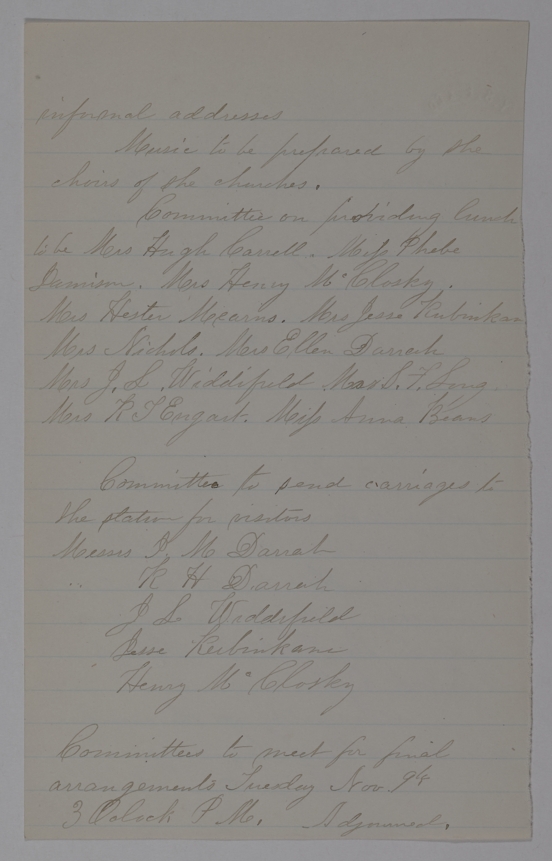 informal addresses
Music to be prepared by the
choirs of the churches.
Committee on providing lunch
to be Mrs Hugh Carrell. Miss Phebe
Jamison. Mrs Henry McClosky.
Mrs Hester Mearns. Mrs Jesse Rubinkam
Mrs Nichols. Mrs Ellen Darrah
Mrs J. L. Widdifield Mrs S. T. Long
Mrs R T Engart. Miss Anna Beans
Committee to send carriages to
the station for visitors
Messrs I. M Darrah
" R H Darrah
J L Widdifield
Jesse Rubinkam
Henry McClosky
Committees to meet for final
arrangements Tuesday Nov 9th
3 Oclock P M. Adjourned.